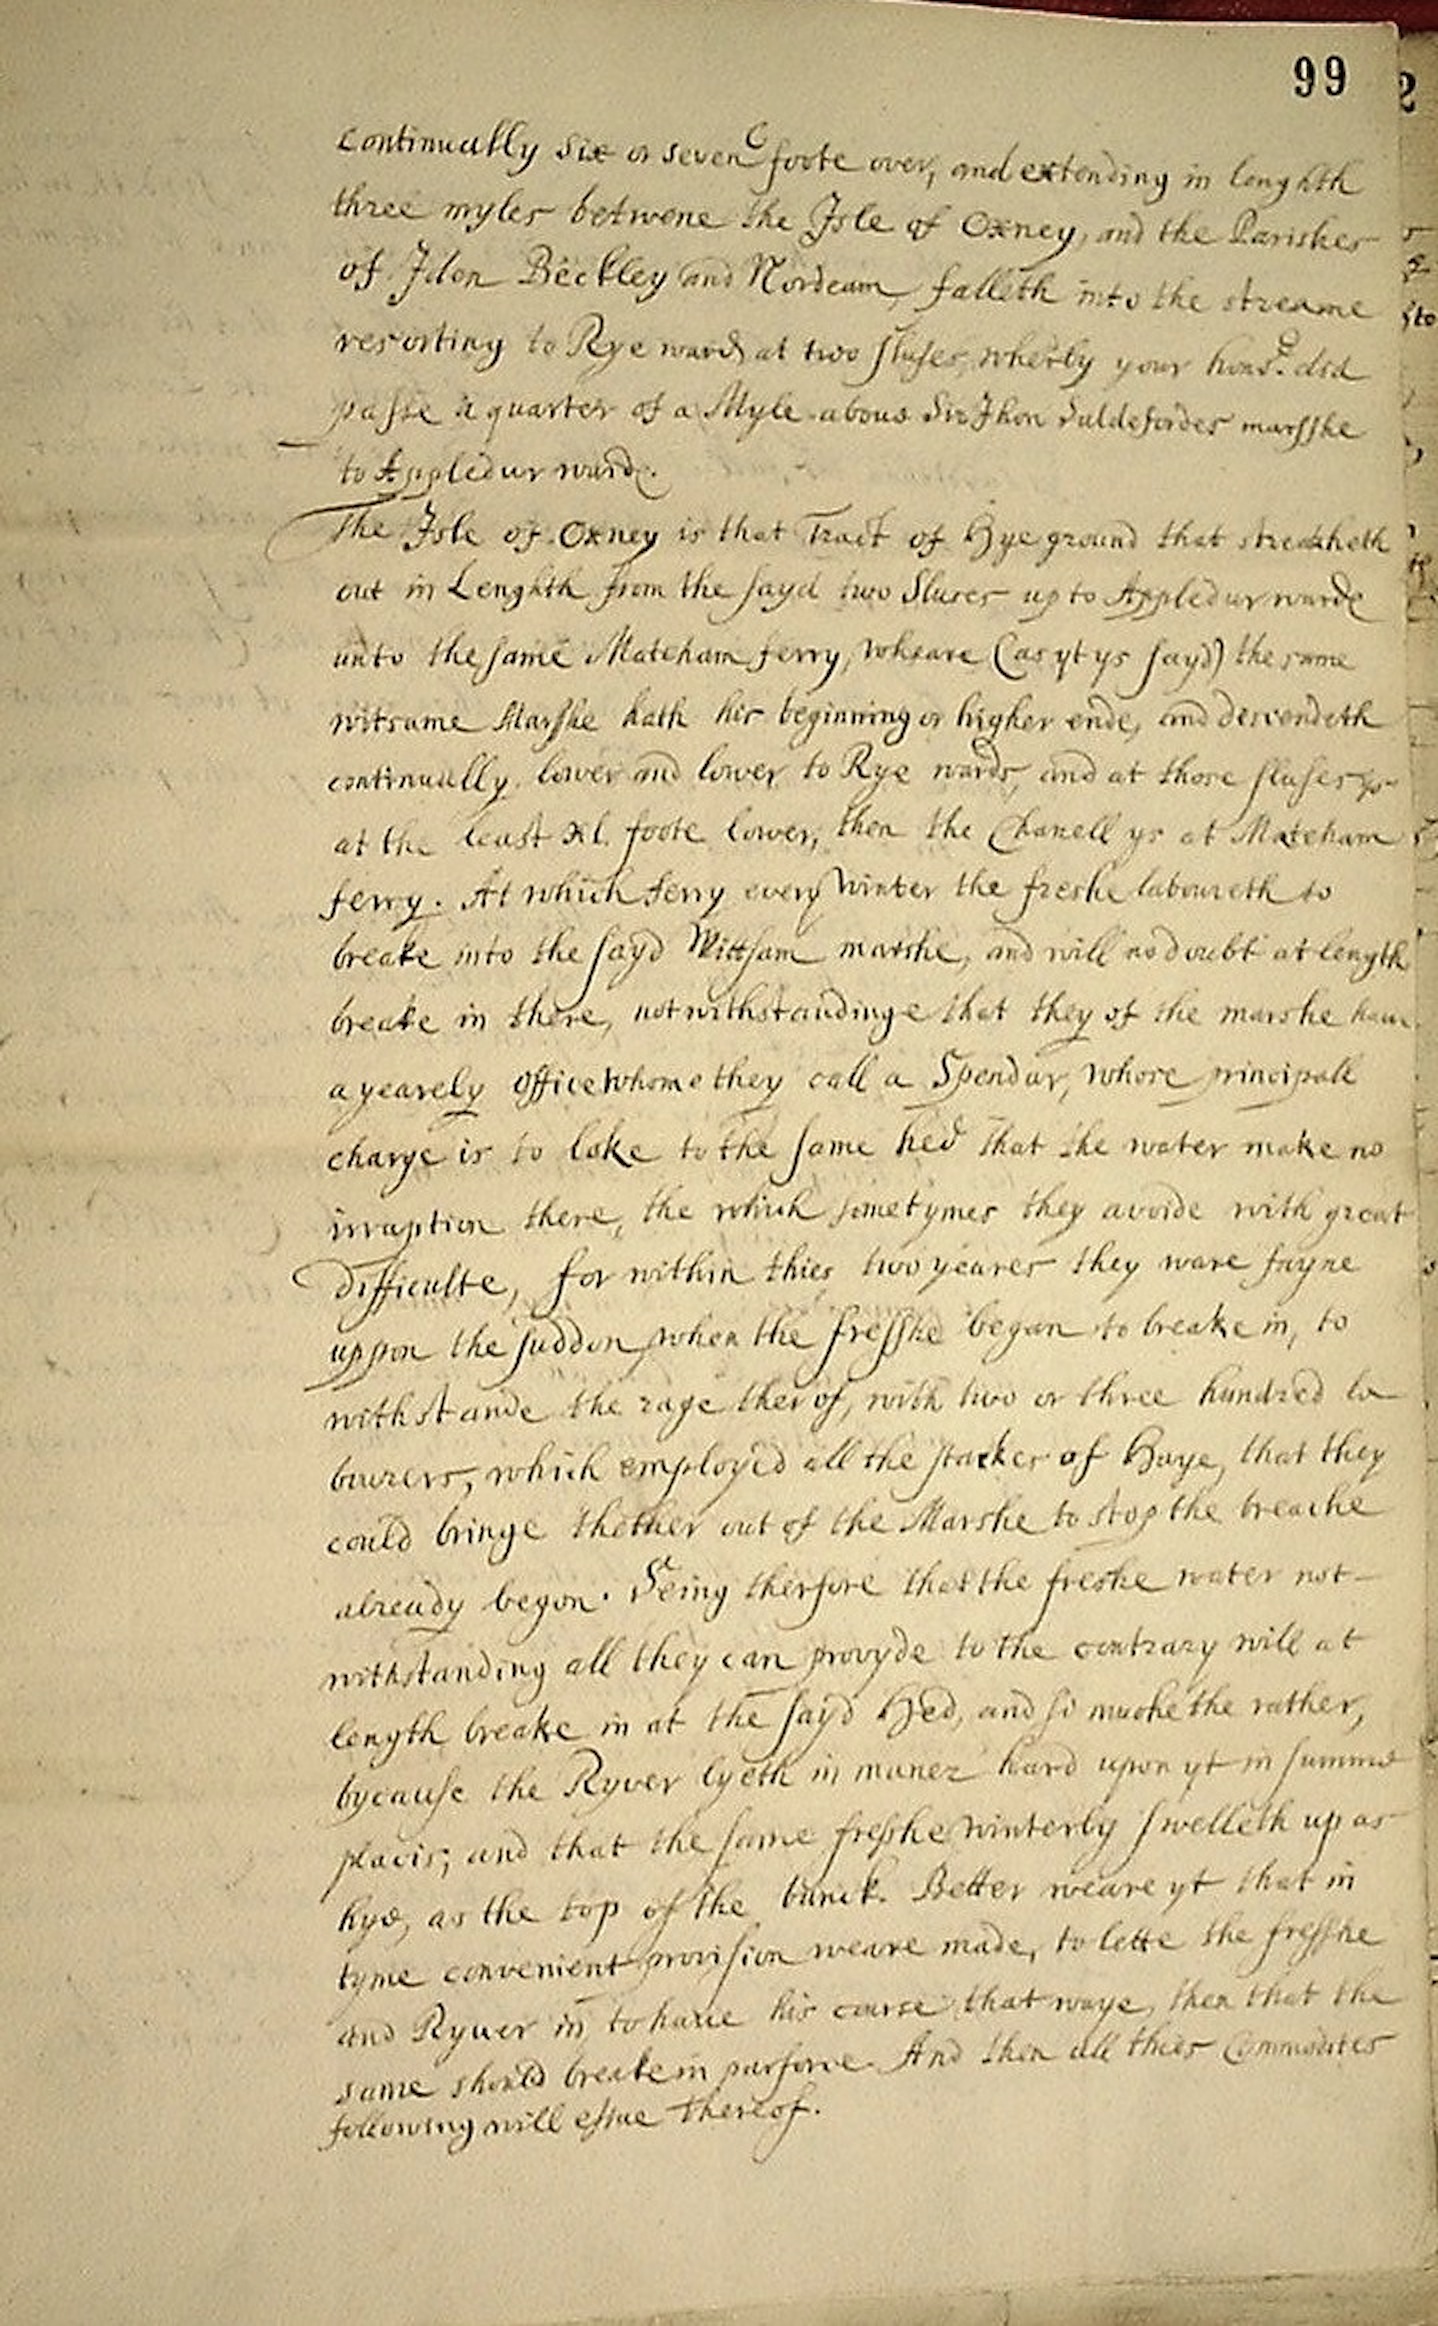 99
continually six or seven foote over, and extending in lenghth
three myles betwene the Isle of Oxney, and the Parishes
of Iden Beckley and Nordeam, falleth into the streame
resorting to Rye ward at two sluses, wherby your hons. did
passe a quarter of a Myle aboue Sir Jhon Guldefordes marsshe
to Appledur warde.
The Isle of Oxney is that Tract of Hye ground that stretcheth
out in Lenghth from the sayd two Sluses up to Appledur warde
unto the same Mateham ferry, wheare (as yt ys sayd) the same
witsame Marshe hath his beginning or higher ende, and descendeth
continually lower and lower to Rye wards, and at those sluses ys
at the least xl. foote lower, then the Chanell ys at Mateham
ferry. At which ferry every winter the freshe laboureth to
breake into the sayd Wittsam marshe, and will no doubt at length
breake in there, notwithstandinge that they of the marshe haue
a yearely Office whome they call a Spendur, whose principall
charge is to loke to the same hed that the water make no
irruption there, the which sometymes they avoide with great
difficulte, for within thies two yeares they ware fayne
uppon the suddon, when the fresshe began to breake in, to
withstande the rage therof, with two or three hundred la
bourers, which employed all the stackes of Haye, that they
could bringe thether out of the Marshe to stop the breache
already begon. Seing therfore that the freshe water not-
withstanding all they can provyde to the contrary will at
length breake in at the sayd Hed, and so muche the rather,
bycause the Ryver lyeth in maner hard upon yt in summe
placis; and that the same freshe winterly swelleth up as
hye, as the top of the banck. Better weare yt that in
tyme convenient provision weare made, to lette the fresshe
and Ryuer in, to haue his course that waye, then that the
same should breake in parforce. And then all thies Commodites
following will essue thereof.